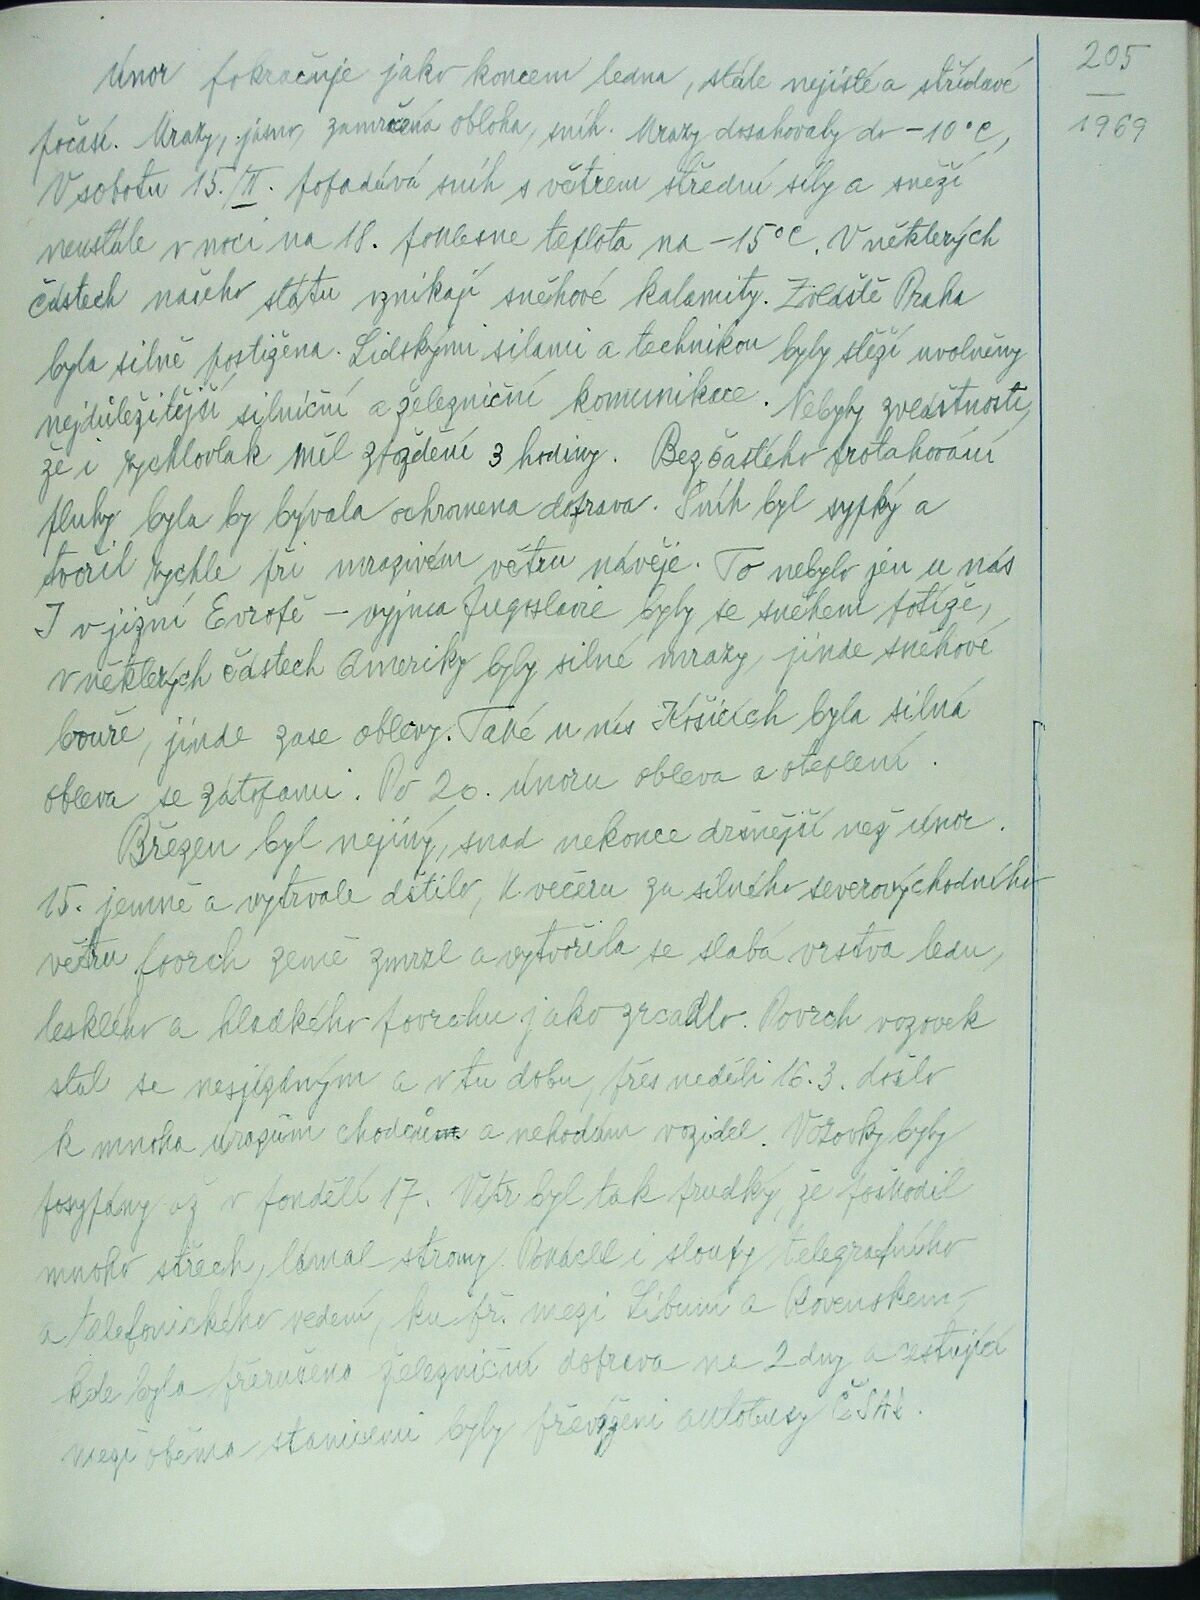 205
1969
Únor pokračuje jako koncem ledna, stále nejisté a střídavé
počasí. Mrazy, jasno, zamračená obloha, sníh. Mrazy dosahovaly do -10°C,
V sobotu 15./II. popadává sníh s větrem střední síly a sněží
neustále v noci na 18. poklesne teplota na -15°C. V některých
částech našeho státu vznikají sněhové kalamity. Zvláště Praha
byla silně postižena. Lidskými silami a technikou byly stěží uvolněny
nejdůležitější silniční a železniční komunikace. Nebyly zvláštností,
že i rychlovlak měl zpoždění 3 hodiny. Bez častého protahování
pluhy byla by bývala ochromena doprava. Sníh byl sypký a
tvořil rychle při mrazivém větru návěje. To nebylo jen u nás
I v jižní Evropě - vyjma Jugoslavie byly se sněhem potíže,
v některých částech Ameriky byly silné mrazy, jinde sněhové
bouře, jinde zase oblevy. Také u nás Košicích byla silná
obleva se zátopami. Po 20. únoru obleva a oteplení.
Březen byl nejiný, snad nekonce drsnější než únor.
15. jemně a vytrvale dštilo, k večeru za silného severovýchodního
větru povrch země zmrzl a vytvořila se slabá vrstva ledu,
lesklého a hladkého povrchu jako zrcadlo. Povrch vozovek
stal se nesjízdným a v tu dobu, přes neděli 16.3. došlo
k mnoha úrazům chodců a nehodám vozidel. Vozovky byly
posypány až v pondělí 17. Vítr byl tak prudký, že poškodil
mnoho střech, lámal stromy. Pokácel i sloupy telegrafního
a telefonického vedení, ku př. mezi Libuní a Rovenskem,
kde byla přerušena železniční doprava na 2 dny a cestující
mezi oběma stanicemi byly převáženi autobusy ČSAD.